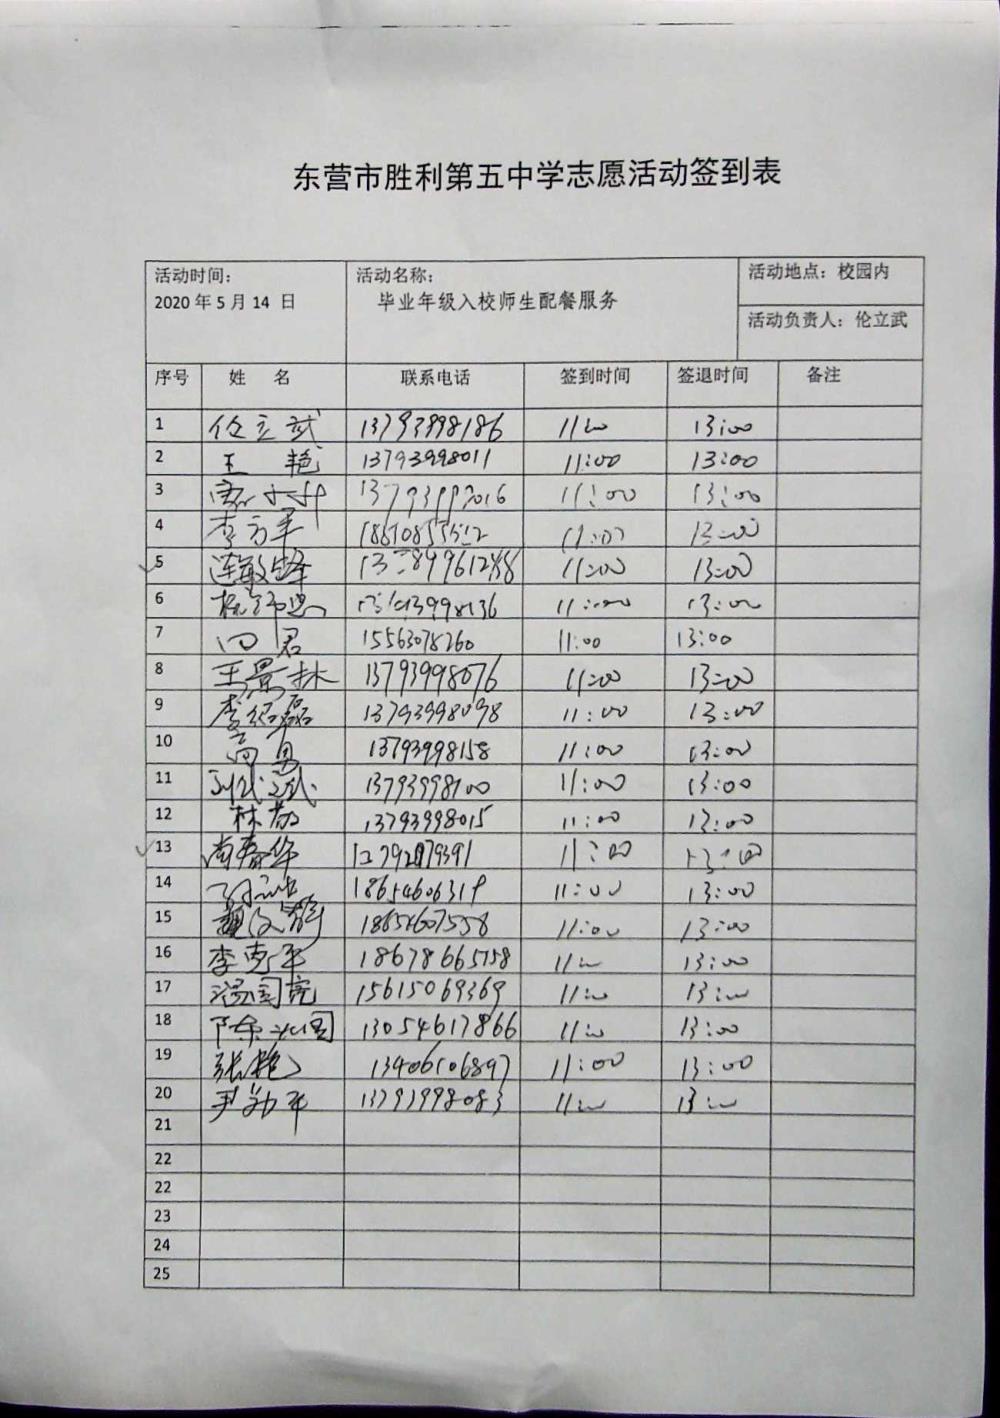 东营市胜利第五中学志愿活动签到表
活动时间： 活动名称： 活动地点：校园内
2020年5月14 日 毕业年级入校师生配餐服务
活动负责人：伦立武
序号 姓 名 联系电话 签到时间 签退时间 备注
1 伦立武 13793998186 11:00 13:00
2 王 艳 13793998011 11:00 13:00
3 11:00 13:00
4 李方军 11:00 13:00
5 11:00 13:00
6 11:00 13:00
7 15563078260 11:00 13:00
8 王景林 13793998076 11:00 13:00
9 李绍磊 13793998098 11:00 13:00
10 高勇 13793998158 11:00 13:00
11 刘武斌 13793998100 11:00 13:00
12 林敬 13793998015 11:00 13:00
13 尚春华 11:00 13:00
14 18654606319 11:00 13:00
15 18654607558 11:00 13:00
16 李克平 18678665758 11:00 13:00
17 温国亮 15615069369 11:00 13:00
18 13054617866 11:00 13:00
19 张艳 13406106897 11:00 13:00
20 尹励平 13793998083 11:00 13:00
21
22
22
23
24
25